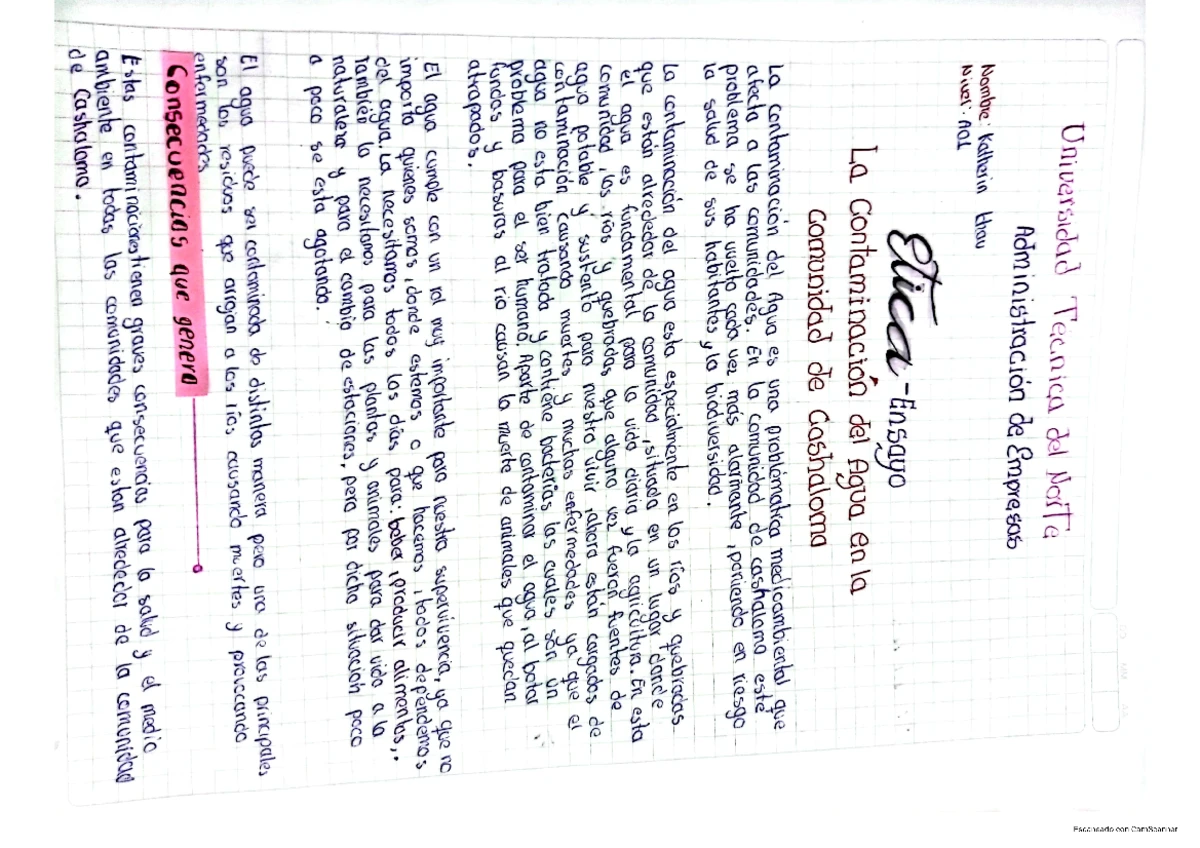 Universidad Tecnica del Norte
Administración de Empresas
Nombre: Katherin Chau
Nivel: A01
Etica-Ensayo
La Contaminación del Agua en la
Comunidad de Cashaloma
La contaminación del Agua es una problemática medioambiental que
afecta a las comunidades. En la comunidad de cashaloma este
problema se ha vuelto cada vez más alarmante, poniendo en riesgo
la salud de sus habitantes y la biodiversidad.
La contaminación del agua esta especialmente en los ríos y quebradas
que están alrededor de la comunidad, situada en un lugar donde
el agua es fundamental para la vida diaria y la agricultura. En esta
comunidad, los ríos y quebradas que alguna vez fueron fuentes de
agua potable y sustento para nuestro vivir, ahora están cargados de
contaminación causando muertes y muchas enfermedades ya que el
agua no esta bien tratada y contiene bacterias las cuales son un
problema para el ser humano. Aparte de contaminar el agua, al botar
fundas y basuras al río causan la muerte de animales que quedan
atrapados.
El agua cumple con un rol muy importante para nuestra supervivencia, ya que no
importa quienes somos, donde estemos o que hacemos, todos dependemos
del agua. La necesitamos todos los días para: beber, producir alimentos,
También la necesitamos para las plantas y animales para dar vida a la
naturaleza y para el cambio de estaciones, pero por dicha situación poco
a poco se esta agotando.
El agua puede ser contaminada de distintas manera pero una de las principales
son los residuos que arrojan a los ríos causando muertes y provocando
enfermedades
Consecuencias que genera
Estas contaminaciones tienen graves consecuencias para la salud y el medio
ambiente en todas las comunidades que estan alrededor de la comunidad
de Cashaloma.
Escaneado con CamScanner